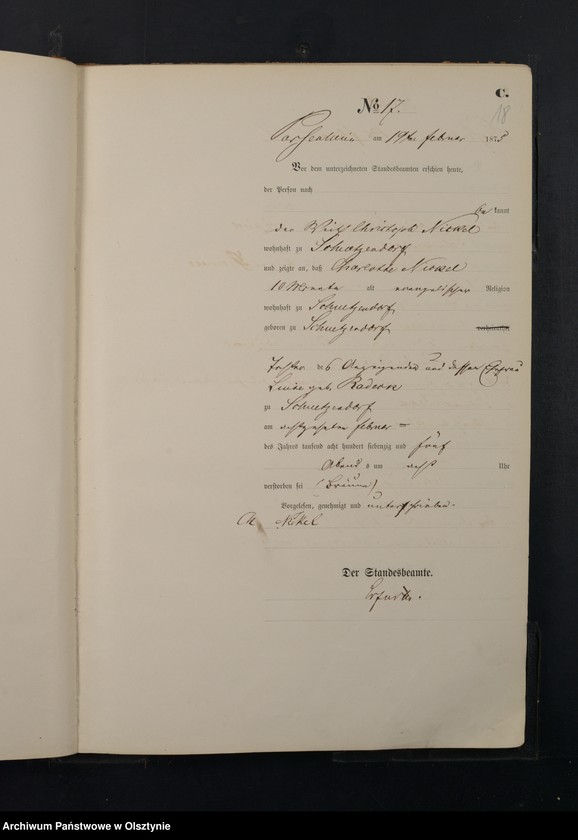 C.
No 17.
18
am 19ten Februar 1875
Vor dem unterzeichneten Standesbeamten erschien heute,
der Person nach
be kannt
der Wirth Christoph Nickel
wohnhaft zu Schuetzendorf
und zeigte an, daß Charlotte Nickel
10 Monate alt evangelischer Religion
wohnhaft zu Schuetzendorf
geboren zu Schuetzendorf
Tochter des Anzeigenden und dessen Ehefrau
Luise geb.
zu Schuetzendorf
am achtzehnten Februar
des Jahres tausend acht hundert siebenzig und fünf
Abends um acht Uhr
verstorben sei (Bräune)
Vorgelesen, genehmigt und unterschrieben.
Nikel
Der Standesbeamte.
Archiwum Państwowe w Olsztynie